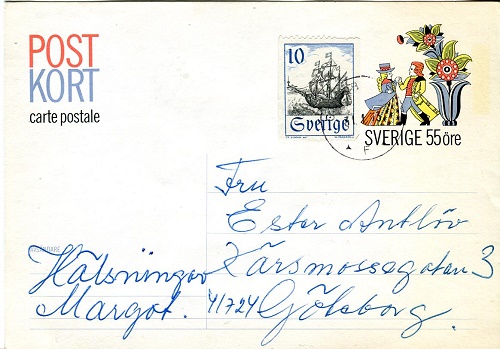 POST
KORT
carte postale
10
Sverige
SVERIGE 55 öre
Fru
Ester Antlöv
Kärsmossegatan 3
41724 Göteborg.
AVSÄNDARE
Hälsningar
Margot.